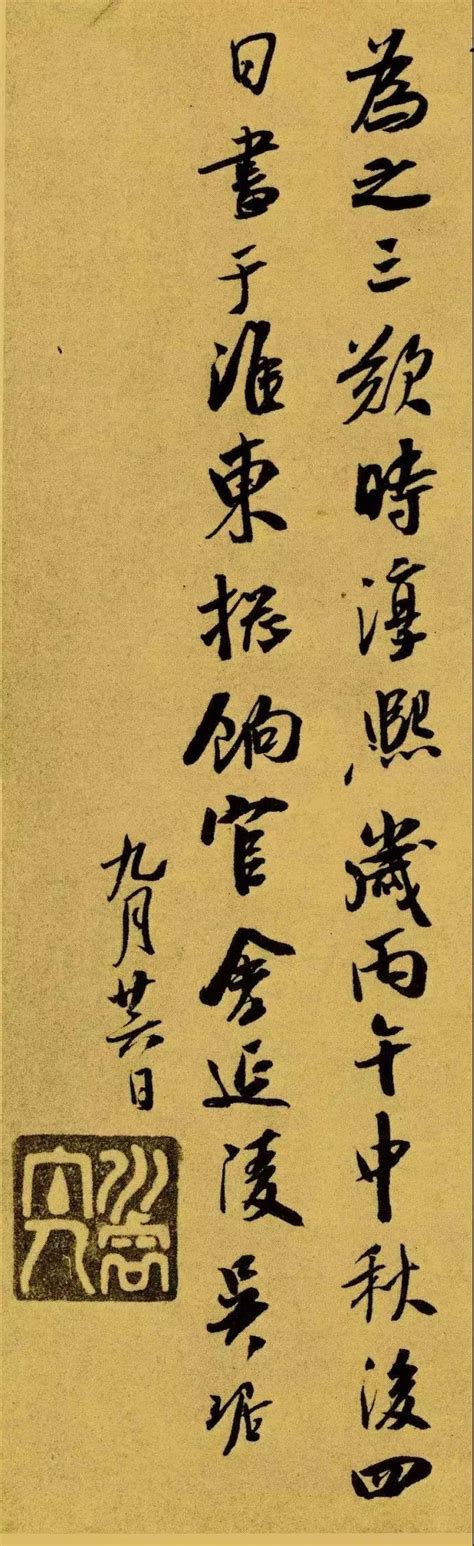 為之三歎時淳熙歲丙午中秋後四
日書于淮東揔餉官舍延陵吳琚
九月廿六日